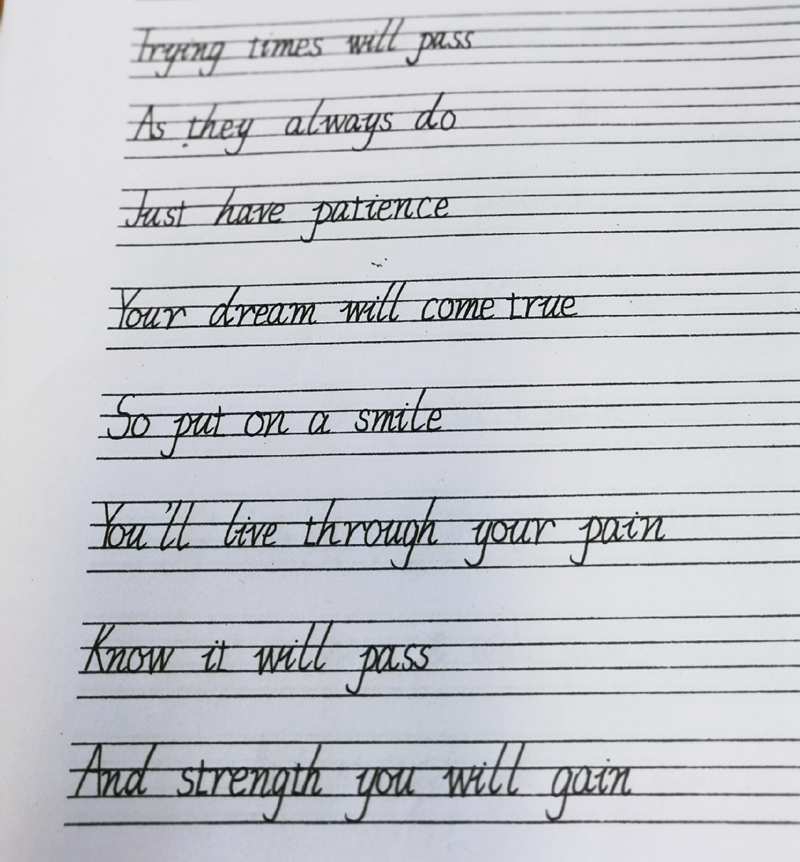 Trying times will pass
As they always do
Just have patience
Your dream will come true
So put on a smile
You'll live through your pain
Know it will pass
And strength you will gain